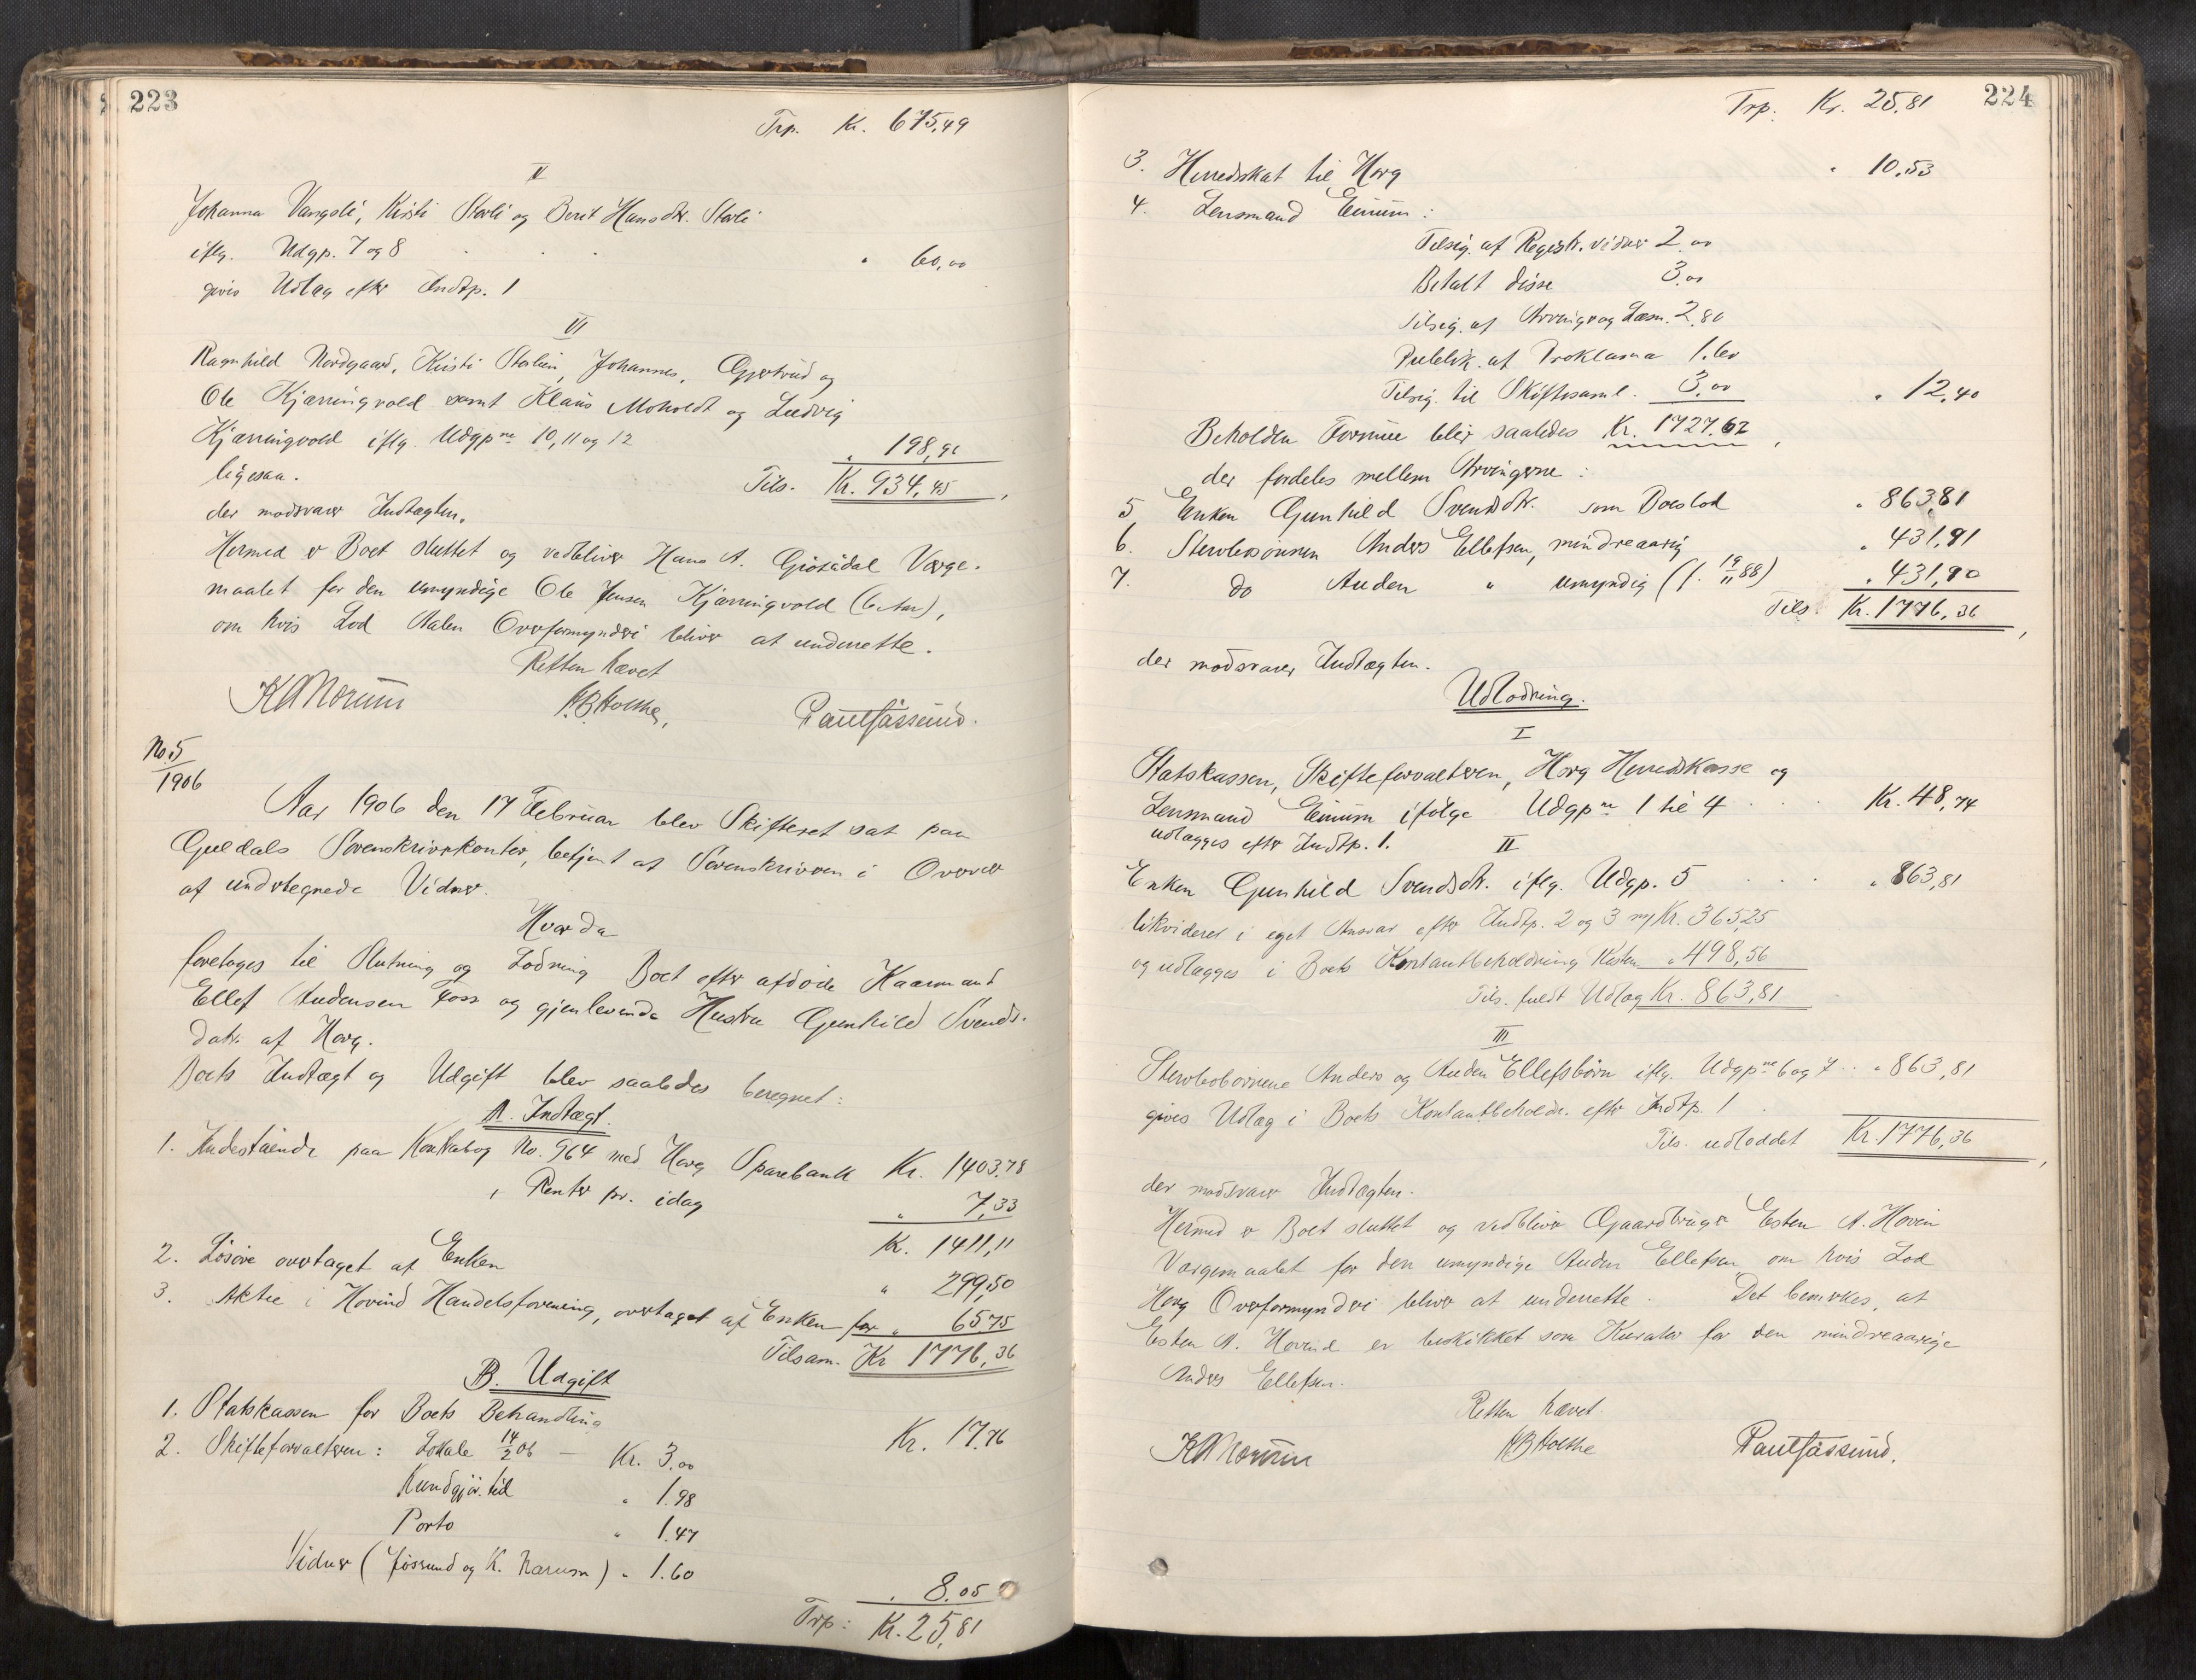 223
Trp. Kr. 675,49
V
Johanna Vangsli, Kirsti Storli og Berit Hansdtr. Storli
iflg. Udgp. 7 og 8 . . . " 60,00
gives Udlæg efter Indtp. 1
VI
Ragnhild Nordgaard, Kirsti Storlien, Johannes, Gjertrud og
Ole Kjærringvold samt Klaus Moholdt og Ludvig
Kjærringvold iflg. Udgpne 10, 11 og 12 " 198,96
ligesaa. Tils. Kr. 934,45,
der modsvarer Indtægten.
Hermed er Boet sluttet og vedbliver Hans A. Værge-
maalet for den umyndige Ole Jensen Kjærringvold
om hvis Lod Aalen Overformynderi bliver at underrette.
Retten hævet
K A Morum H.B. Holthe, Paul Jøssund.
No. 5
1906
Aar 1906 den 17 Februar blev Skifteret sat paa
Guldals Sorenskriverkontor, betjent af Sorenskriveren i Overvær
af undertegnede Vidner.
Hvorda
foretoges til Slutning og Lodning Boet efter afdøde Kaarmand
Ellef Andersen Foss og gjenlevende Hustru Gunhild Svends-
datr. af Horg.
Boets Indtægt og Udgift blev saaledes beregnet:
A. Indtægt.
1. Indestående paa Kontrabog No. 964 med Horg Sparebank Kr. 1403,78
" Renter pr. idag " 7,33
Kr. 1411,11
2. Løsøre overtaget af Enken " 299,50
3. Aktie i Hovind Handelsforening, overtaget af Enken for " 65,75
Tilsam. Kr 1776,36
B. Udgift
1. Statskassen for Boets Behandling Kr. 17,76
2. Skifteforvalteren: Lokale 14/2 06 — Kr. 3,00
Kundgjør. tid " 1.98
Porto " 1.47
Vidner (Jøssund og K. Narum) " 1.60
" 8,05
Trp: Kr. 25,81
224
Trp. Kr. 25,81
3. Herredsskat til Horg " 10,53
4. Lensmand Einum:
Tilsig. af Registr. vidner 2,00
Betalt disse 3,00
Tilsig. af Arvinger og Læsn. 2,80
Publik. af Proklama 1,60
Tilsig. til Skiftesaml. 3,00 " 12,40
Beholden Formue blir saaledes Kr. 1727,62,
der fordeles mellem Arvingerne:
5 Enken Gunhild Svendsdtr. som Boeslod " 863,81
6. Stervbosønnen Anders Ellefsen, mindreaarig " 431,91
7. do Auden " umyndig (f. 19/11 88) " 431,90
Tils. Kr. 1776,36,
der modsvarer Indtægten.
Udlodning.
I
Statskassen, Skifteforvalteren, Horg Herredskasse og
Lensmand Einum ifølge Udgpne 1 til 4 . . . Kr. 48,74
udlægges efter Indtp. 1.
II
Enken Gunhild Svendsdtr. iflg. Udgp. 5 . . . " 863,81
likviderer i eget Ansvar efter Indtp. 2 og 3 m/ Kr. 365,25
og udlægges i Boets Kontantbeholdning Resten " 498,56
Tils. fuldt Udlæg Kr. 863,81
III
Stervbobørnene Anders og Auden Ellefsbørn iflg. Udgpne 6 og 7 . . " 863,81
gives Udlæg i Boets Kontantbeholdn. efter Indtp. 1 .
Tils. udloddet Kr. 1776,36,
der modsvarer Indtægten.
Hermed er Boet sluttet og vedbliver Gaardbruger Esten A. Hovin
Værgemaalet for den umyndige Auden Ellefsen om hvis Lod
Horg Overformynderi bliver at underrette. Det bemerkes, at
Esten A. Hovind er beskikket som Kurator for den mindreaarige
Anders Ellefsen.
Retten hævet.
K A Morum H B Holthe Paul Jøssund.